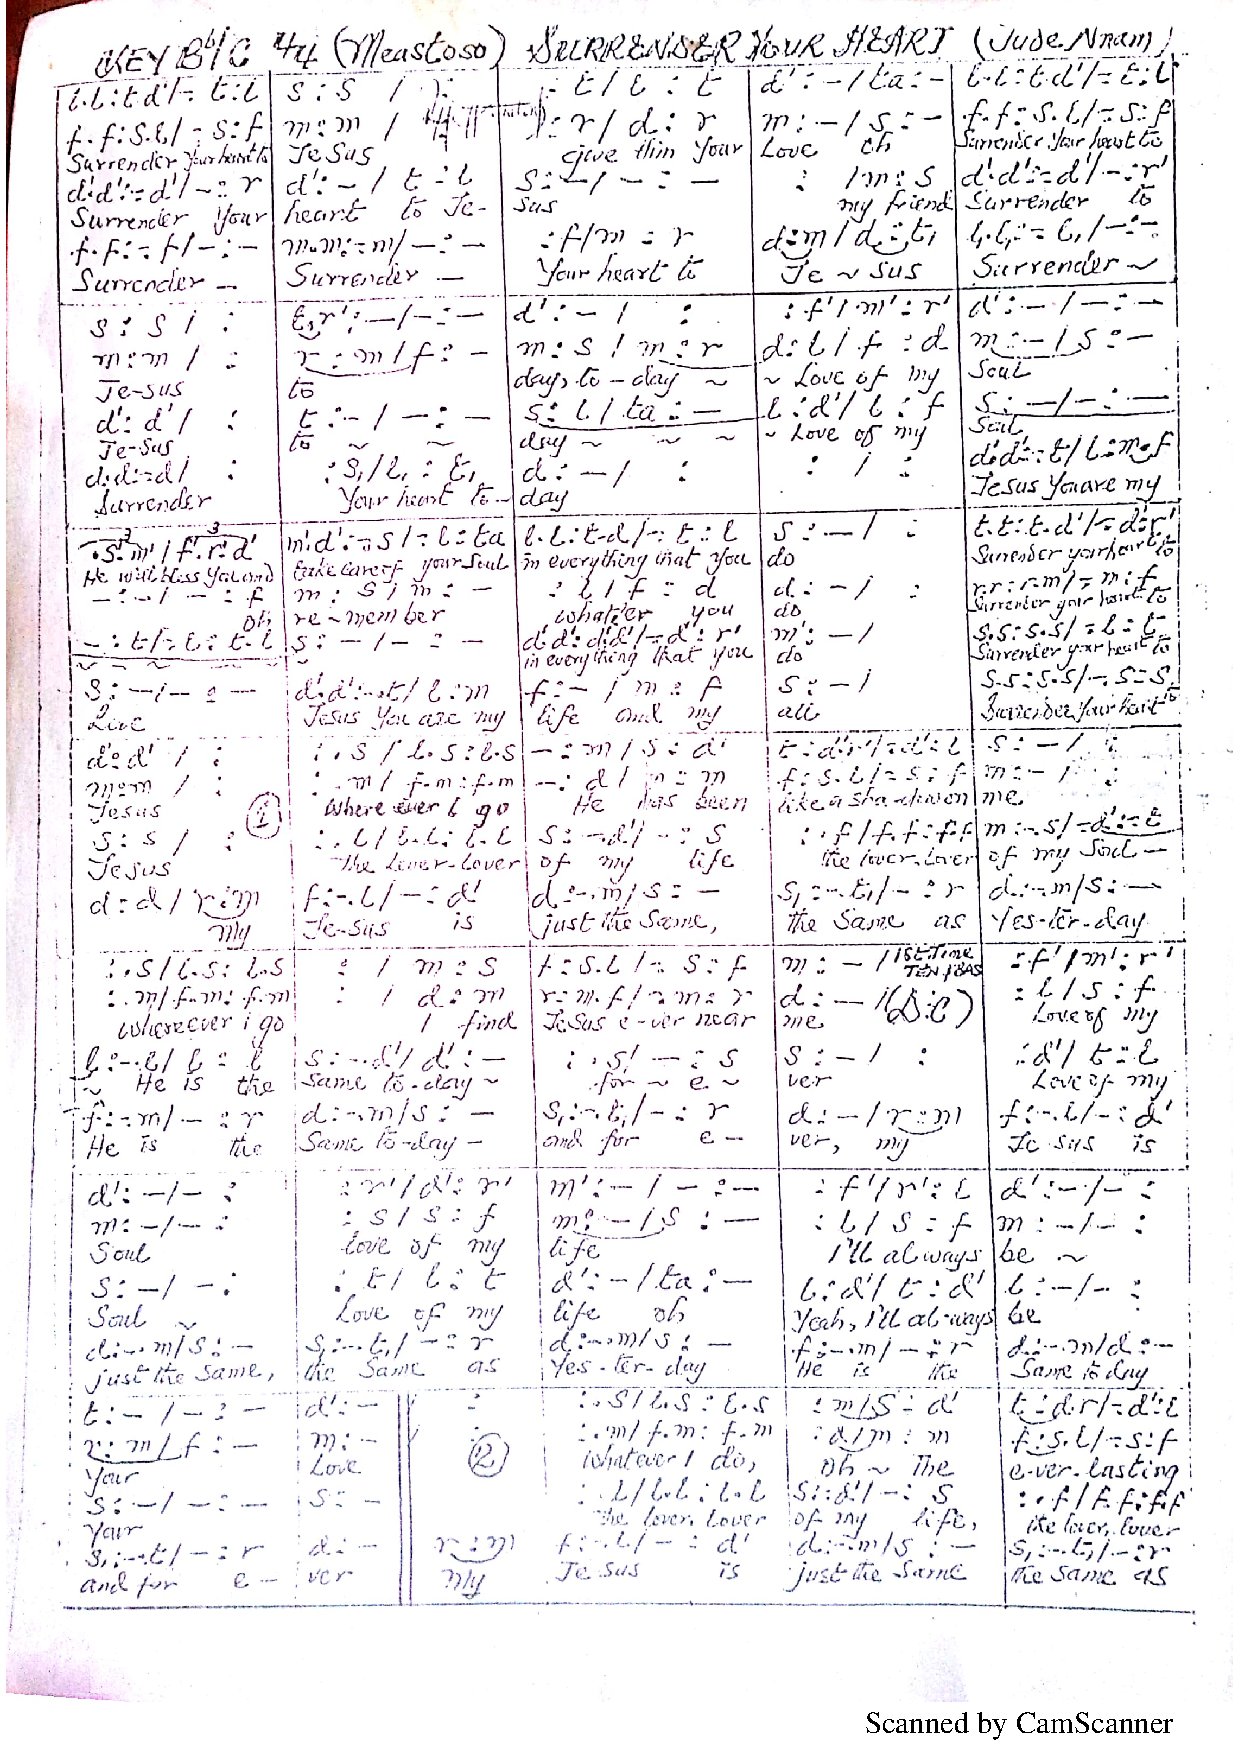 KEY Bb/C 4/4 (Meastoso) SURRENDER YOUR HEART (Jude Nnam)
l.l:t.d'/-.t:l | s:s / : | :t/l:t | d':-/ta:- | l.l:t.d'/-.t:l
f.f:s.l/-.s:f | m:m / : | :r/d:r | m:-/s:- | f.f:s.l/-.s:f
Surrender Your heart to | Jesus | give Him Your | Love Oh | Surrender Your heart to
d'.d':-.d'/-:r | d':-/t:l | s:-/-:- | : /m:s | d'.d':-.d'/-:r'
Surrender Your | heart to Je- | sus | my friend | Surrender to
f.f:-.f/-:- | m.m:-.m/-:- | :f/m:r | d:m/d:t, | l,.l,:-.l,/-:-
Surrender - | Surrender - | Your heart to | Je ~ sus | Surrender ~
s:s / : | t,r':-/-:- | d':-/ : | :f'/m':r' | d':-/-:-
m:m / : | r:m/f:- | m:s/m:r | d:l/f:d | m:-/s:-
Je-sus | to | day, to-day ~ | ~ Love of my | Soul
d':d'/ : | t:-/-:- | s:l/ta:- | l:d'/l:f | s:-/-:-
Je-sus | to ~ ~ | day ~ ~ ~ ~ | ~ Love of my | Soul
d.d:-.d/ : | :s,/l,:t, | d:-/ : | : / : | d'.d':-.t/l:m.f
Surrender | Your heart to- | day | Jesus You are my
.s'.m'/f'.r'.d' | m'.d':-.s/-.l:ta | l.l:t.d/-.t:l | s:-/ : | t.t:t.d'/-.d':r'
He will bless You and | take care of your Soul | in everything that you | do | Surrender your heart to
-:-/-:f | m:s/m:- | :l/f:d | d:-/ : | r.r:r.m/-.m:f
Oh | re-member | whate'er you | do | Surrender your heart to
-:t/-.l:t.l | s:-/-:- | d'.d':d'.d'/-.d':r' | m':-/ | s.s:s.s/-.l:t
~ ~ ~ ~ ~ | ~ | in everything that you | do | Surrender your heart to
s:-/-:- | d'.d':-.t/l:m | f:-/m:f | s:-/ | s.s:s.s/-.s:s
Live | Jesus You are my | life and my | all | Surrender Your heart to
d':d'/ : | :.s/l.s:l.s | -:m/s:d' | t:d'.r'/-.d':l | s:-/ :
m:m/ : | :.m/f.m:f.m | -:d/m:m | f:s.l/-.s:f | m:-/ :
Jesus (1) | Where ever I go | He has been | like a sha-dow on | me
s:s/ : | :.l/l.l:l.l | s:-.d'/-:s | :.f/f.f:f.f | m:-.s/-.d':-.t
Jesus | The lover-Lover | of my life | the lover-Lover | of my Soul -
d:d/r:m | f:-.l/-:d' | d:-.m/s:- | s,:-.t,/-:r | d:-.m/s:-
my | Je-sus is | just the Same, | the Same as | Yes-ter-day
:.s/l.s:l.s | : /m:s | f:s.l/-.s:f | m:-/1st Time TEN/BAS | :f'/m':r'
:.m/f.m:f.m | : /d:m | r:m.f/-.m:r | d:-/(D.C) | :l/s:f
Wherever i go | I find | Jesus e-ver near | me | Love of my
l:-.l/l:l | s:-.d'/d':- | :.s/-:s | s:-/ : | :d'/t:l
~ He is the | Same to-day ~ | for ~ e ~ | ver | Love of my
f:-.m/-:r | d:-.m/s:- | s,:-.t,/-:r | d:-/r:m | f:-.l/-:d'
He is the | Same to-day - | and for e- | ver, my | Je sus is
d':-/-: | :r'/d':r' | m':-/-:- | :f'/r':l | d':-/-:
m:-/-: | :s/s:f | m:-/s:- | :l/s:f | m:-/-:
Soul | love of my | life | I'll always | be ~
s:-/-: | :t/l:t | d':-/ta:- | l:d'/t:d' | l:-/-:
Soul ~ | Love of my | life Oh | Yeah, I'll al-ways | be
d:-.m/s:- | s,:-.t,/-:r | d:-.m/s:- | f:-.m/-:r | d:-.m/d:-
just the Same, | the Same as | Yes-ter-day | He is the | Same to day
t:-/-:- | d':- | : | :.s/l.s:l.s | :m/s:d' | t:d'.r'/-.d':l
r:m/f:- | m:- | (2) | :.m/f.m:f.m | :d/m:m | f:s.l/-.s:f
Your | Love | Whatever I do, | Oh ~ the | e-ver-lasting
s:-/-:- | s:- | :.l/l.l:l.l | s:-.d'/-:s | :.f/f.f:f.f
Your | the lover, Lover | of my life, | the lover, lover
s,:-.t,/-:r | d:- | r:m | f:-.l/-:d' | d:-.m/s:- | s,:-.t,/-:r
and for e- | ver | my | Jesus is | just the Same | the Same as
Scanned by CamScanner